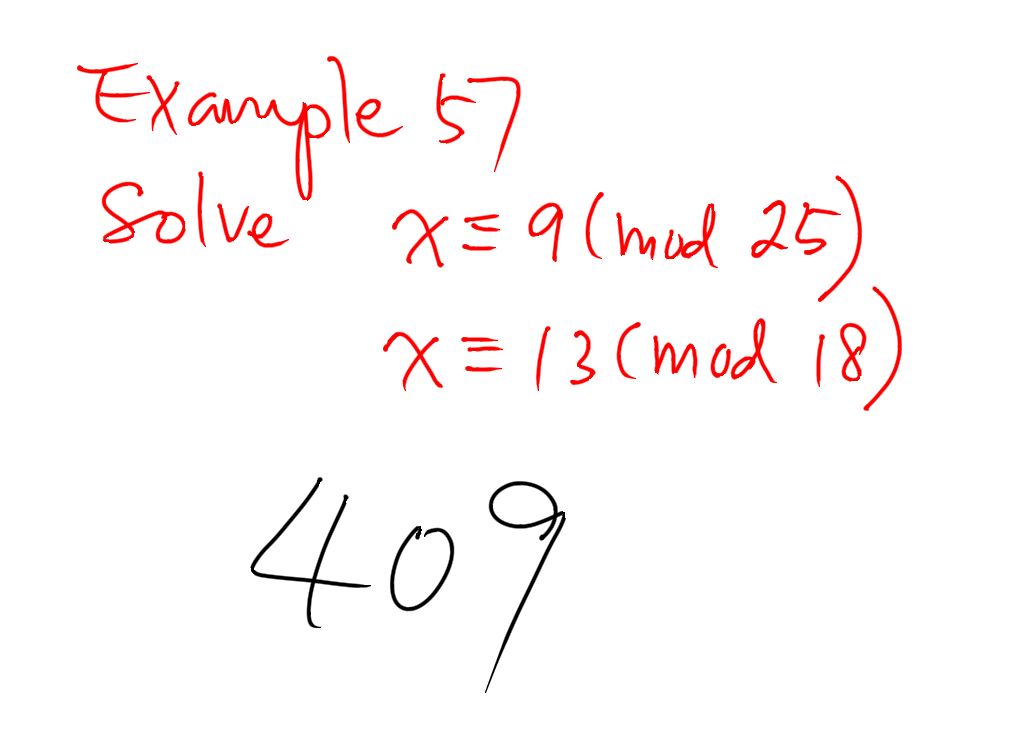 Example 57
Solve x ≡ 9 (mod 25)
x ≡ 13 (mod 18)
409